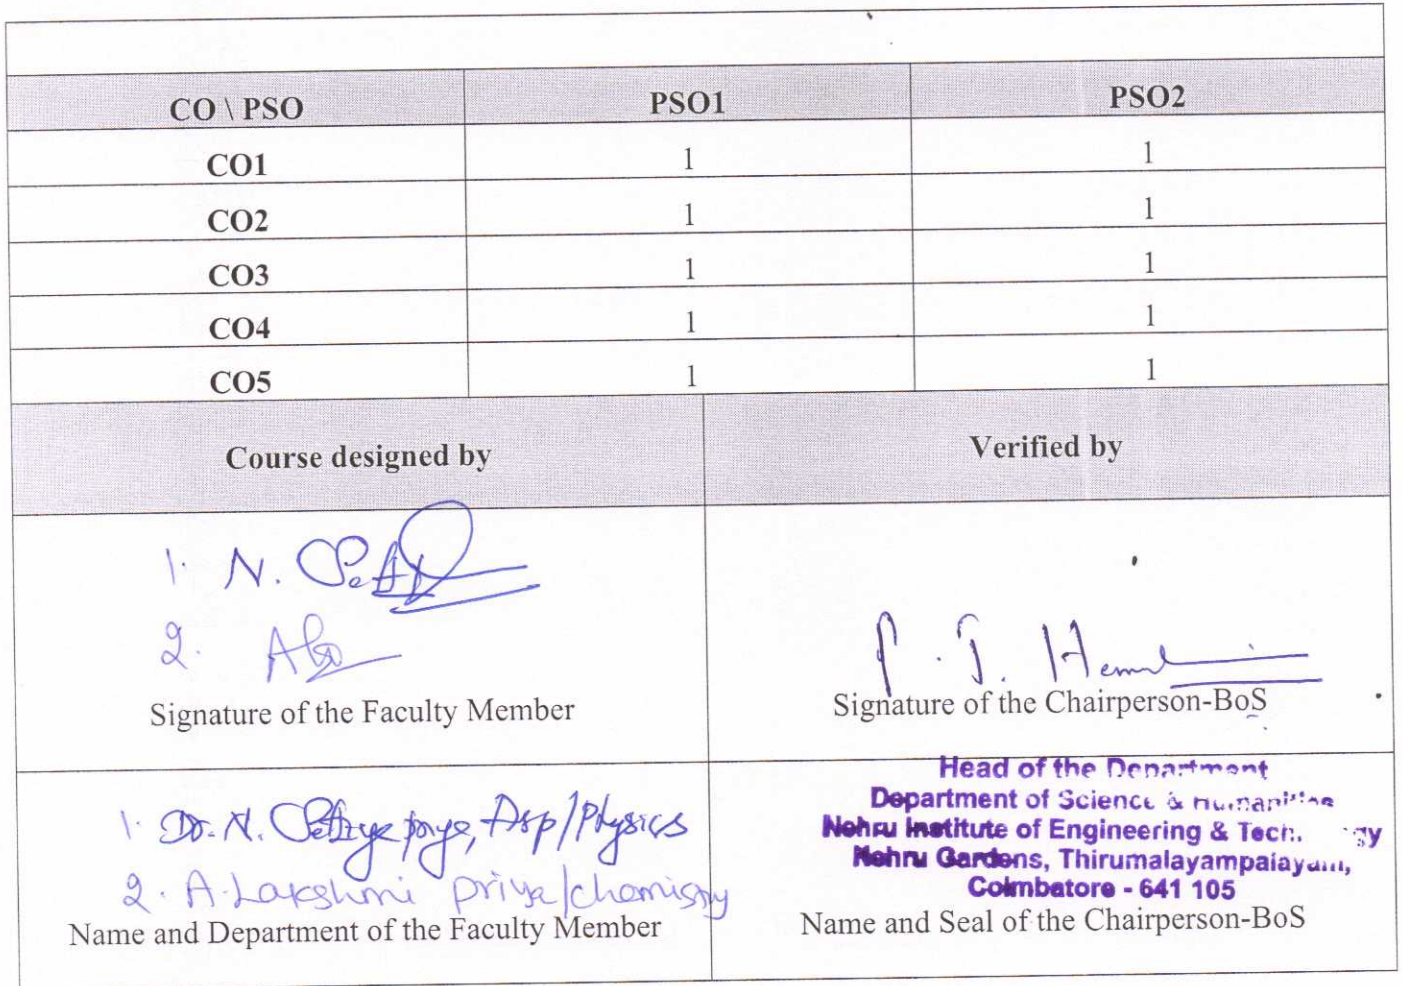 CO \ PSO PSO1 PSO2
CO1 1 1
CO2 1 1
CO3 1 1
CO4 1 1
CO5 1 1
Course designed by Verified by
1. N.
2.
Signature of the Faculty Member
P. T.
Signature of the Chairperson-BoS
1. Dr. N. Asp/Physics
2. A. Lakshmi priya/chemistry
Name and Department of the Faculty Member
Head of the Department
Department of Science & Humanities
Nehru Institute of Engineering & Tech. gy
Nehru Gardens, Thirumalayampalayam,
Coimbatore - 641 105
Name and Seal of the Chairperson-BoS